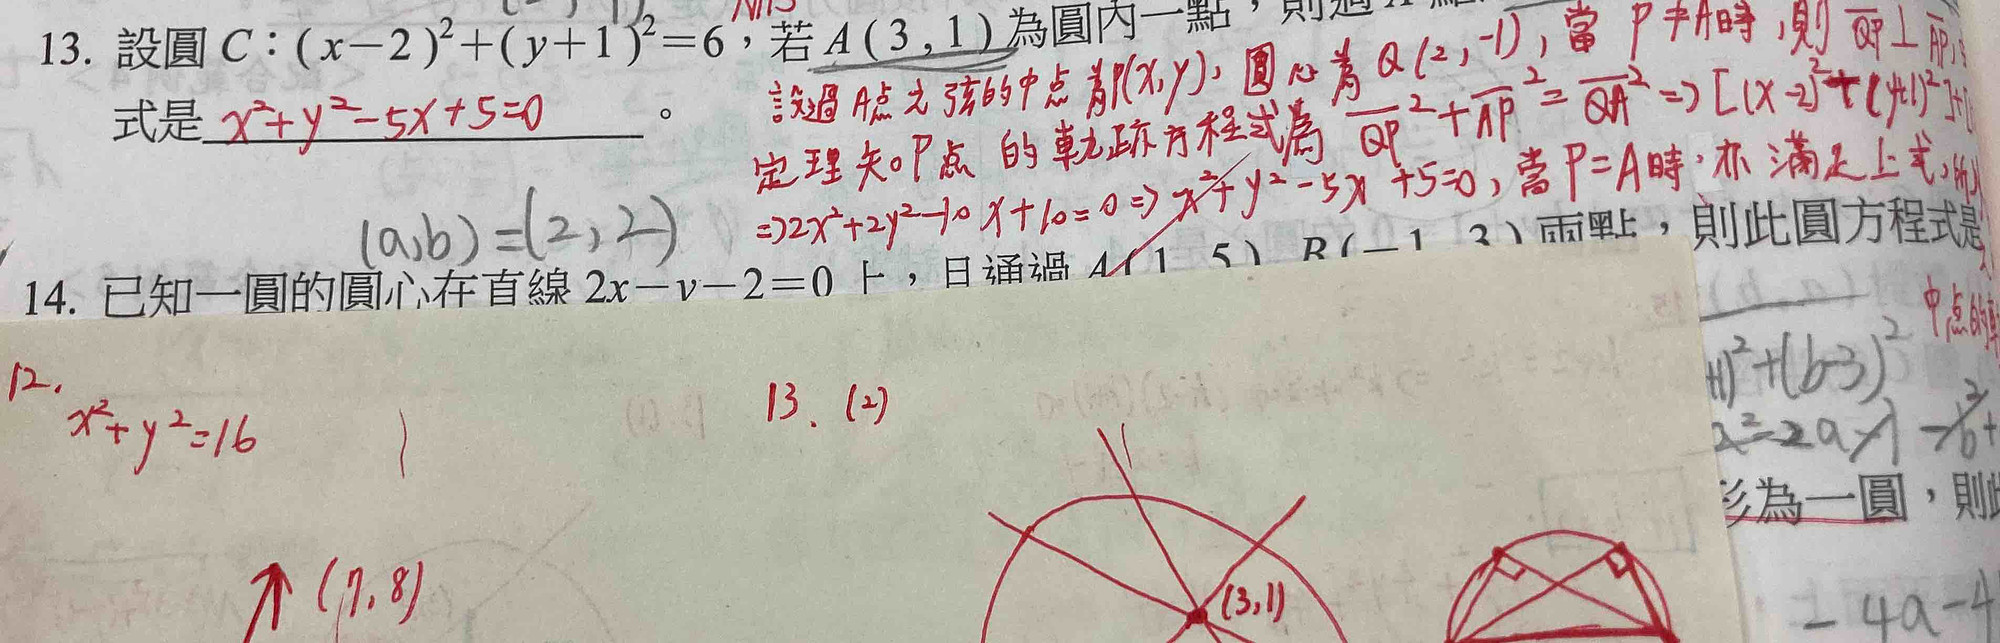 13. 設圓 C：(x－2)²＋(y＋1)²＝6，若 A(3,1)為圓內一點，則過 A 點
式是 x²+y²-5x+5=0 。
設過A点之弦的中点為P(x,y)，圓心為Q(2,-1)，當P≠A時，則 QP⊥AP，
定理知。P点的軌跡方程式為 QP²+AP²=QA² => [(x-2)²+(y+1)²]+
=>2x²+2y²-10x+10=0 => x²+y²-5x+5=0，當P=A時，亦滿足上式，
中点的軌
(a,b)=(2,2)
14. 已知一圓的圓心在直線 2x－y－2＝0 上，且通過 A(1,5)、B(－1,3)兩點，則此圓方程式是
+1)²+(b-3)²
a²-2a+1-b²+
形為一圓，則此
-4a-4
12.
x²+y²=16
(7,8)
13. (2)
(3,1)